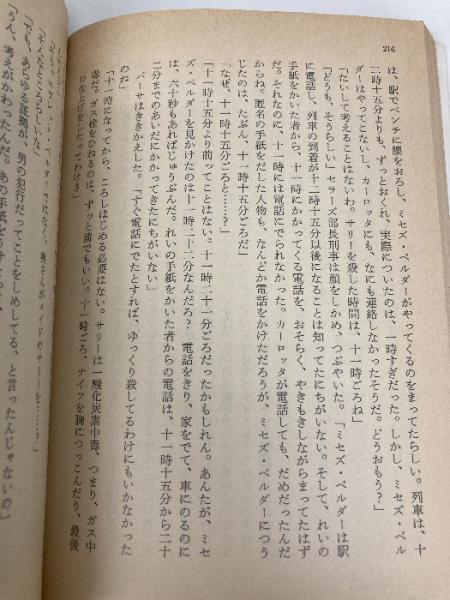 216
は、駅でベンチに腰をおろし、ミセズ・ベルダーがやってくるのをまってたらしい。列車は、十
二時十五分よりも、ずっとおくれ、実際についたのは、一時すぎだった。しかし、ミセズ・ベル
ダーはやってこないし、カーロッタにも、なにも連絡しなかったそうだ。どうおもう?」
「たいして考えることはないわ。サリーを殺した時間は、十一時ごろね」
「どうも、そうらしい」セラーズ部長刑事は顔をしかめ、つぶやいた。「ミセズ・ベルダーは駅
に電話し、列車の到着が十二時十五分以後になることは知ってたにちがいない。そして、れいの
手紙をかいた者から、十一時にかかってくる電話を、おそらく、やきもきしながらまってたはず
だ。それなのに、十一時には電話にでられなかった。カーロッタが電話しても、だめだったんだ
からね。匿名の手紙をだした人物も、なんどか電話をかけただろうが、ミセズ・ベルダーにつう
じたのは、たぶん、十一時十五分ごろだ」
「なぜ、十一時十五分ごろと……?」
「十一時十五分より前ってことはない。十一時二十一分ごろだったかもしれん。あんたが、ミセ
ズ・ベルダーを見かけたのは、十一時二十二分なんだろ? 電話をきり、家をでて、車にのるのに
は、六十秒もあればじゅうぶんだ。れいの手紙をかいた者からの電話は、十一時十五分から二十
二分までのあいだにかかってきたにちがいない」
バーサはききかえした。「すぐ電話にでたとすれば、ゆっくり殺してるわけにもいかなかった
のね」
「十一時になってから、ころしはじめる必要はない。サリーは一酸化炭素中毒、つまり、ガス中
毒だ。ガス栓をひねるのは、ずっと前でもいい。十一時ごろ、ナイフを胸につっこんだり、最後
の仕上げをしたってわけさ」
奥さんがメイドのサリーを……?」
「でも、あらゆる証拠が、男の犯行だってことをしめしてる、と言ったんじゃないの」
「うん、考えがかわったんだ。あの手紙を